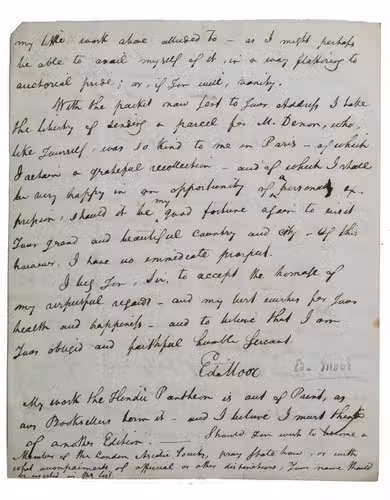 my little work above alluded to - as I might perhaps
be able to avail myself of it, in a way flattering to
auctorial pride; or, if You will, vanity.
With the packet now sent to Your address I take
the liberty of sending a parcel for M. Denon, who,
like Yourself, was so kind to me in Paris - of which
I retain a grateful recollection - and of which I shall
be very happy in an opportunity of a personal ex-
pression, should it be my good fortune again to visit
Your grand and beautiful Country and City - of this
however, I have no immediate prospect.
I beg You, Sir, to accept the homage of
my respectful regards - and my best wishes for Your
health and happiness - and to believe that I am
Your obliged and faithful humble Servant.
Ed Moor
Ed. Moor
My work the Hindu Pantheon is out of Print, as
our Booksellers term it - and I believe I must think
of another Edition. Should You wish to become a
Member of the London Asiatic Society, pray state how, or with
what accompaniments of official or other distinctions, Your name should
be inserted in the list.